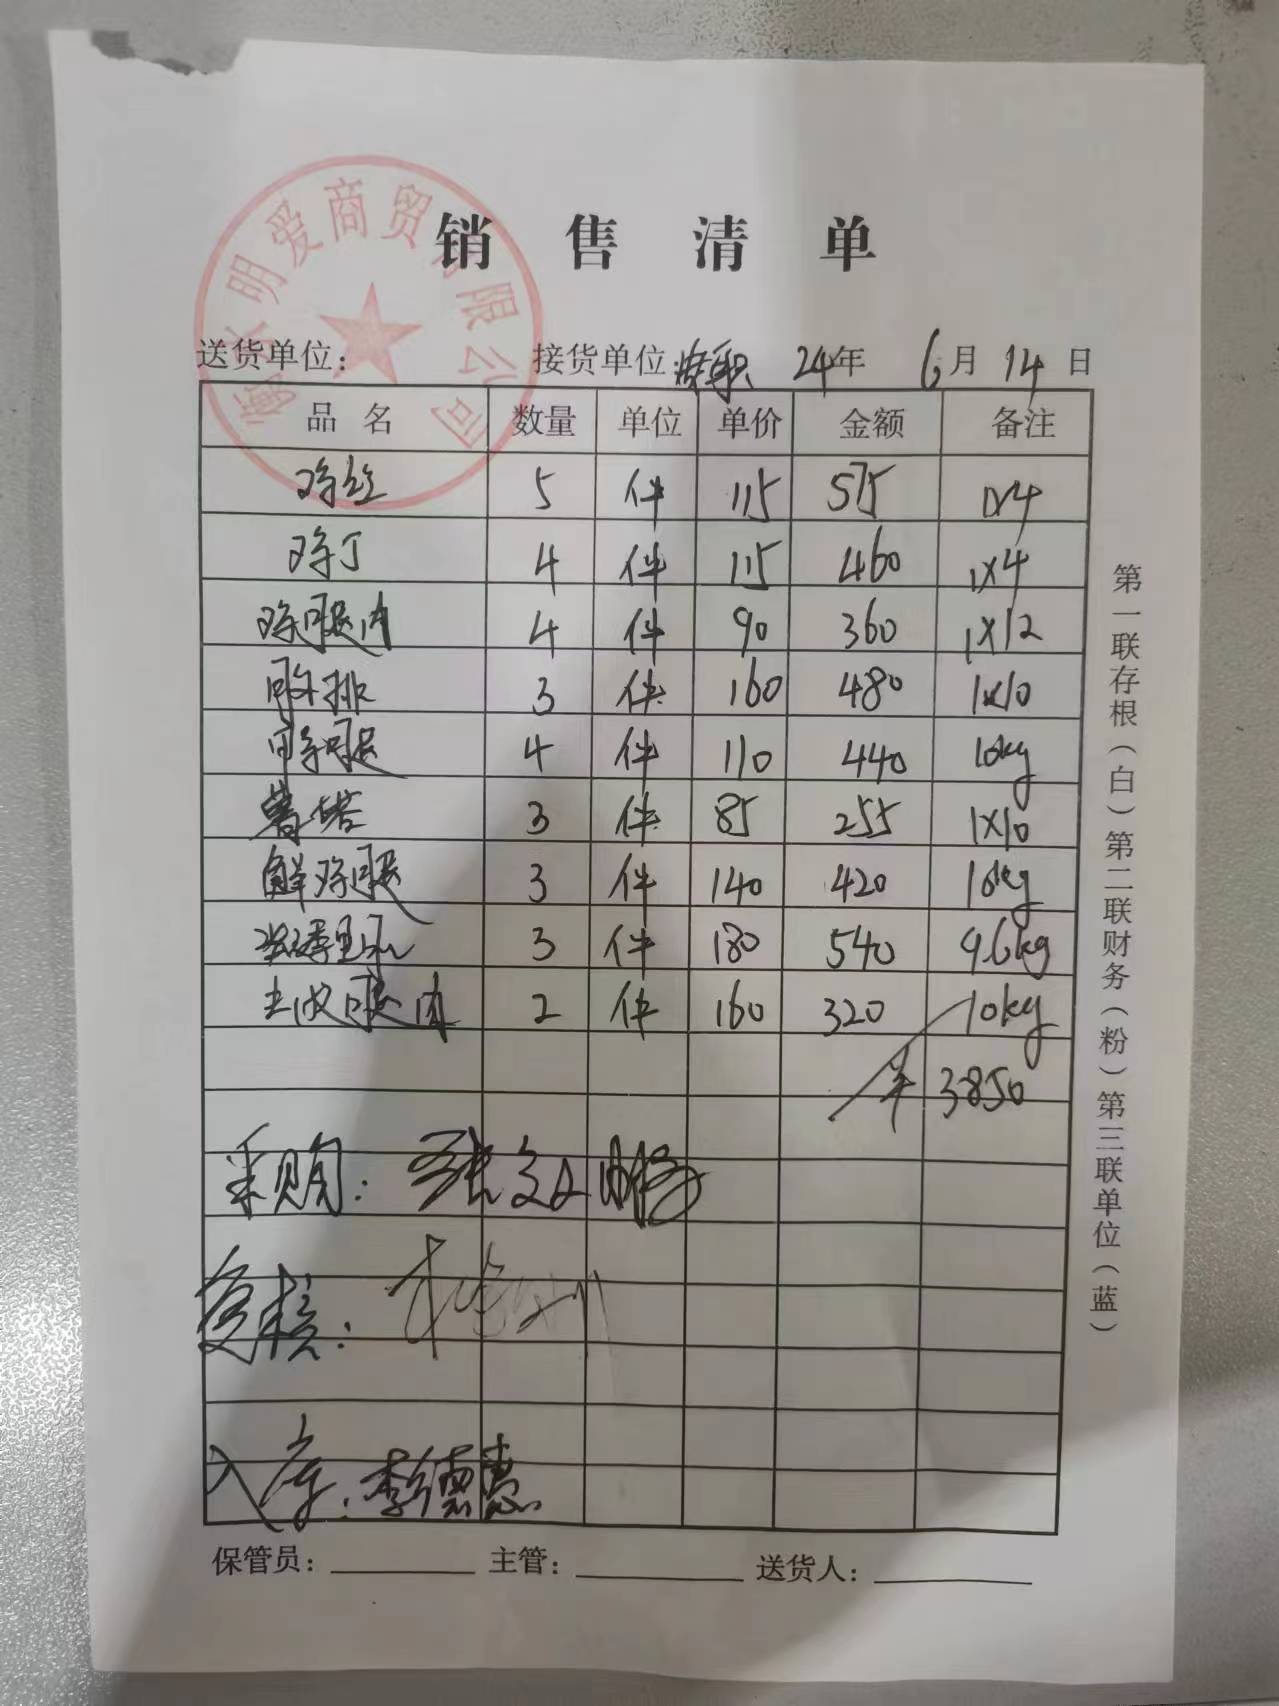 衡水明爱商贸有限公司
销售清单
送货单位： 接货单位： 24年 6月 14日
品名 数量 单位 单价 金额 备注
鸡丝 5 件 115 575 1x4
鸡丁 4 件 115 460 1x4
鸡腿肉 4 件 90 360 1x12
排 3 件 160 480 1x10
腿 4 件 110 440 10kg
薯塔 3 件 85 255 1x10
鲜鸡腿 3 件 140 420 10kg
3 件 180 540 9.6kg
腿肉 2 件 160 320 10kg
¥ 3850
采购：张
复核：
入库：李德惠
保管员： 主管： 送货人：
第一联存根（白）第二联财务（粉）第三联单位（蓝）